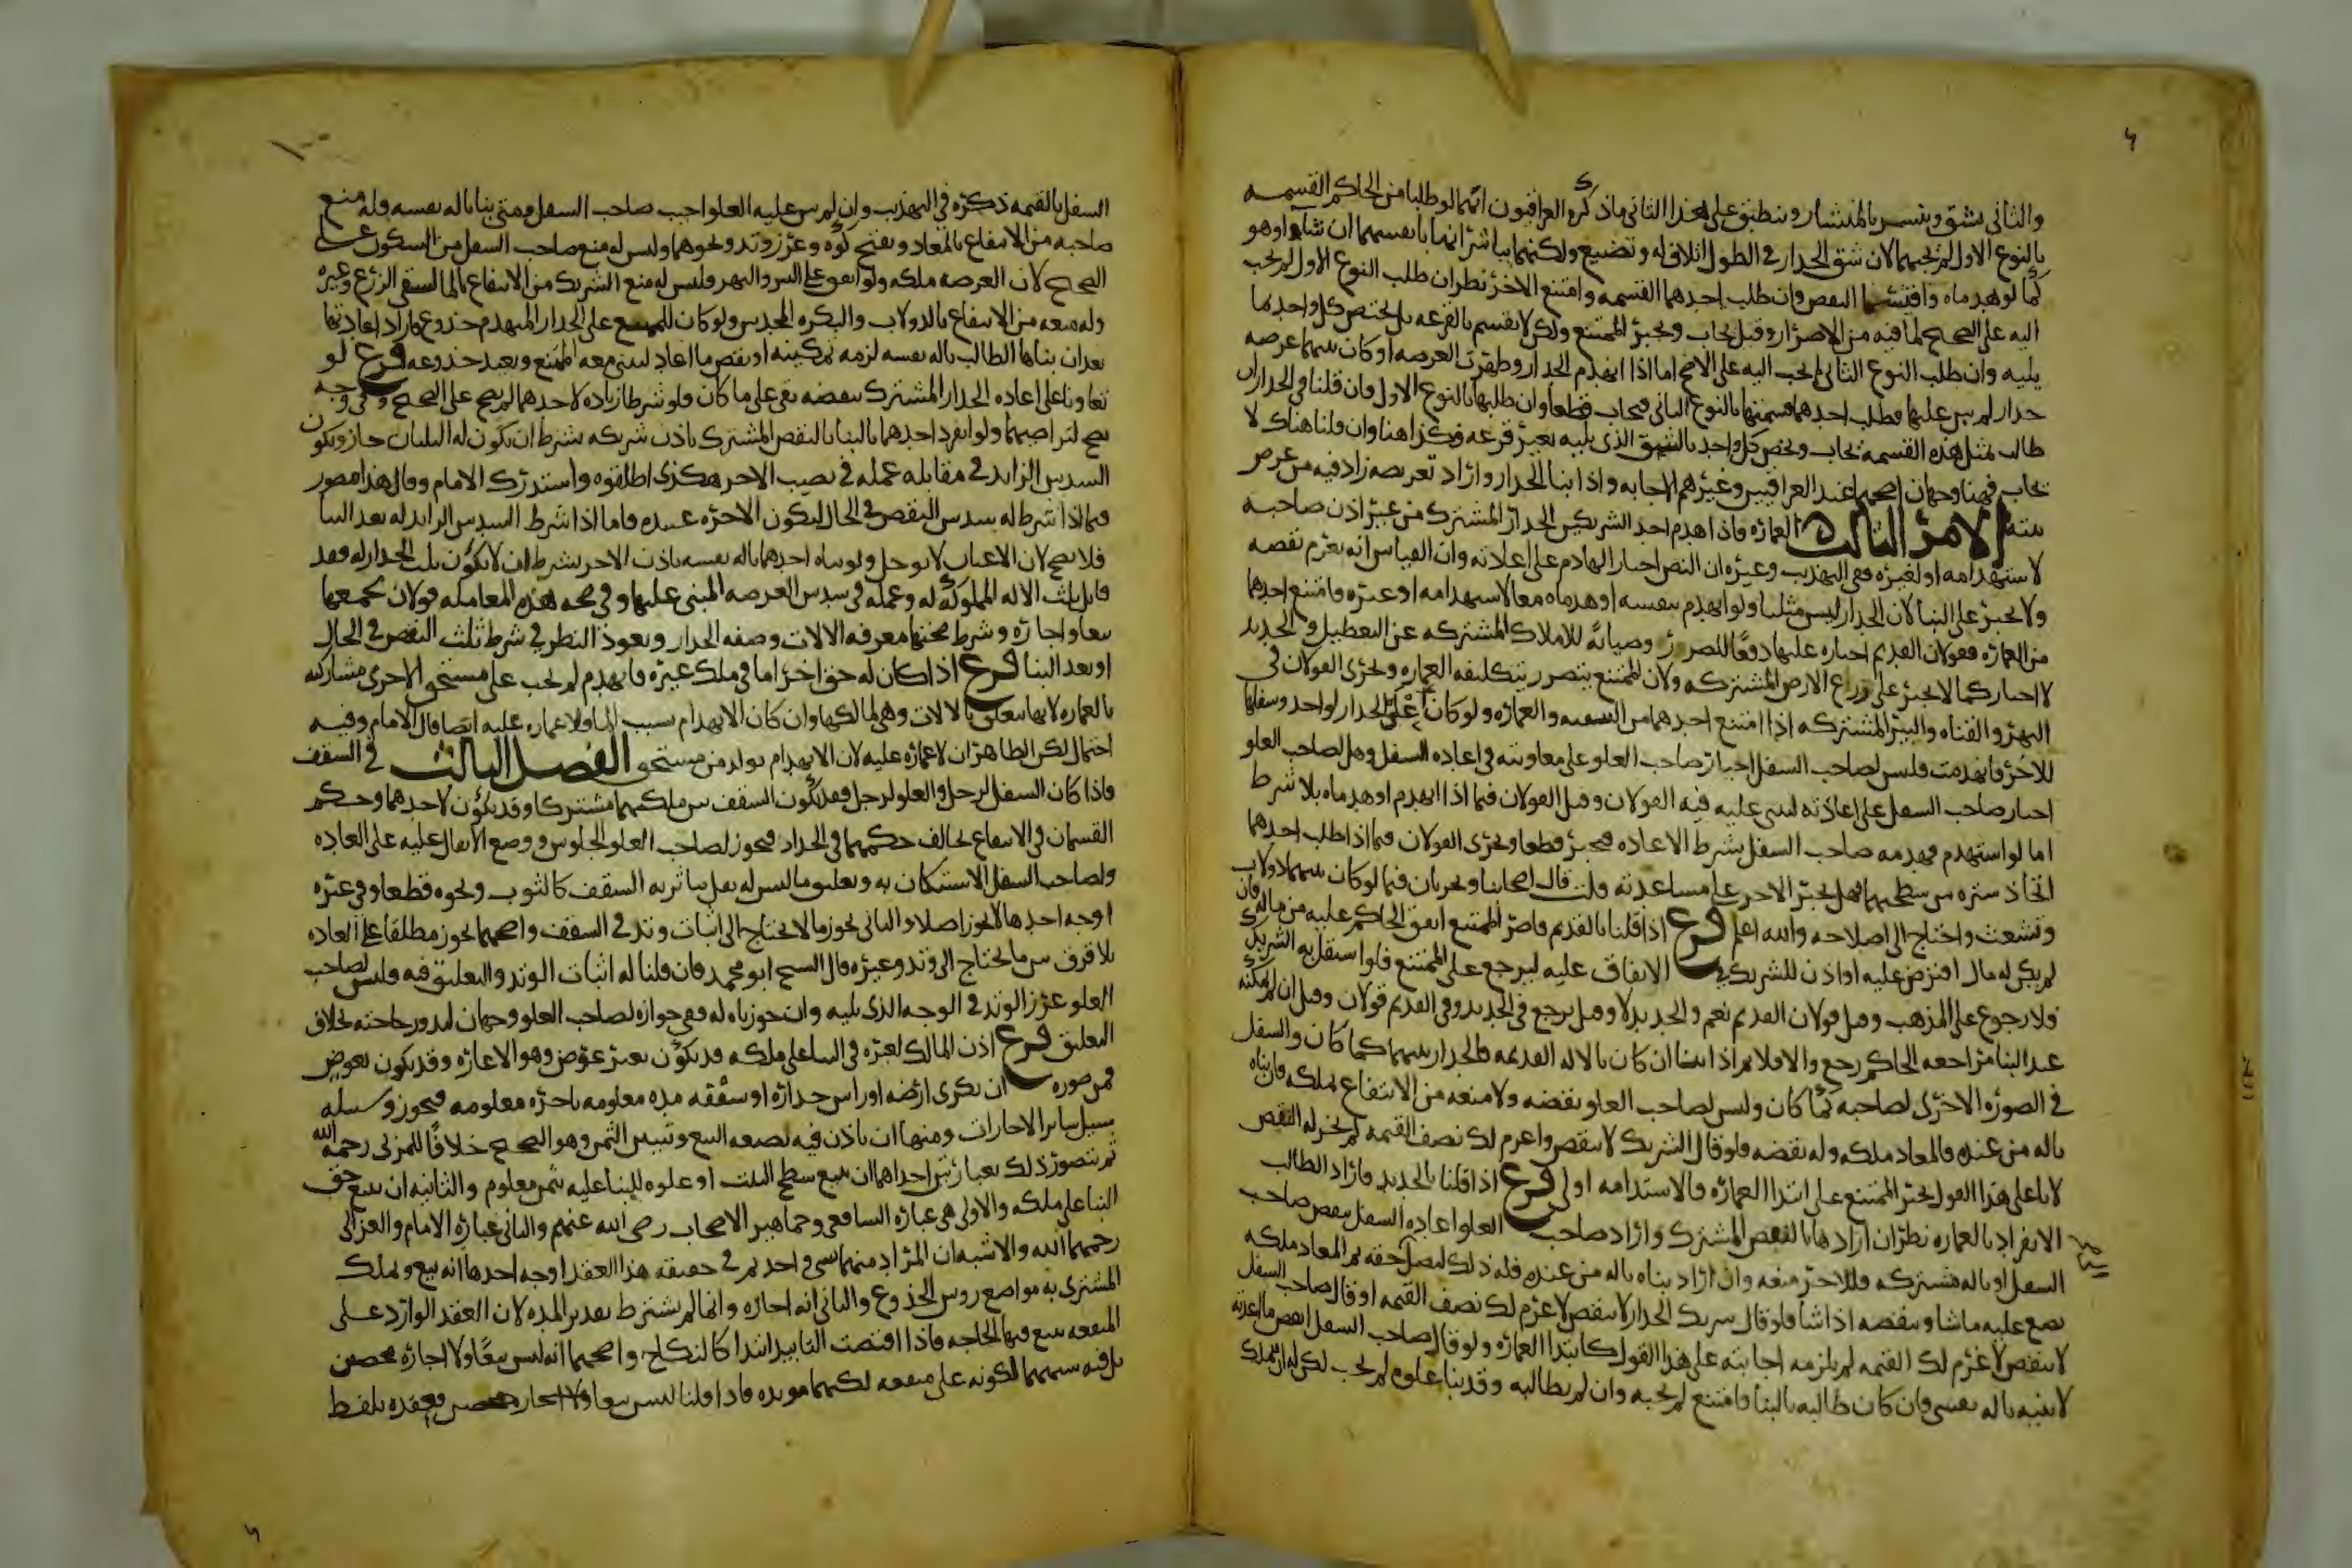 والثاني بشق وينشر بالمنشار وينطبق على هذا الثاني ما ذكره العراقيون انهما لو طلبا من الحاكم القسمه
بالنوع الاول لم يجبهما لان شق الجدار في الطول اتلاف له وتضييع ولكنهما يباشرانها بانفسهما ان شاا وهو
كما لو هدماه واقتسما النقض وان طلب احدهما القسمه وامتنع الاخر نظر ان طلب النوع الاول لم يجب
اليه على الصحيح لما فيه من الاضرار وقيل يجاب ويجبر الممتنع ولكن لا يقسم بالقرعه بل يختص كل واحد بما
يليه وان طلب النوع الثاني لم يجب اليه على الاصح اما اذا انهدم الجدار وظهرت العرصه او كان بينهما عرصه
جدار لم يبن عليها فطلب احدهما قسمتها بالنوع الثاني فيجاب قطعا وان طلبها بالنوع الاول فان قلنا في الجدار ان
طالب مثل هذه القسمه يجاب ويخص كل واحد بالشق الذي يليه بغير قرعه فكذا هنا وان قلنا هناك لا
يجاب فهنا وجهان اصحهما عند العراقيين وغيرهم الاجابه واذا بنا الجدار واراد تعريضه زاد فيه من عرض
بيته الامر الثالث العماره فاذا هدم احد الشريكين الجدار المشترك من غير اذن صاحبه
لاستهدامه او لغيره ففي التهذيب وغيره ان النص اجبار الهادم على اعادته وان القياس انه يغرم نقصه
ولا يجبر على البنا لان الجدار ليس مثليا ولو انهدم بنفسه او هدماه معا لاستهدامه او غيره وامتنع احدهما
من العماره فقولان القديم اجباره عليها دفعا للضرر وصيانة للاملاك المشتركه عن التعطيل والجديد
لا اجبار كما لا يجبر على زرع الارض المشتركه ولان الممتنع يتضرر بتكليفه العماره ويجرى القولان في
النهر والقناه والبير المشتركه اذا امتنع احدهما من التنقيه والعماره ولو كان علو الجدار لواحد وسفله
للاخر فانهدمت فليس لصاحب السفل اجبار صاحب العلو على معاونته في اعاده السفل وهل لصاحب العلو
اجبار صاحب السفل على اعادته ليبني عليه فيه القولان وقيل القولان فيما اذا انهدم او هدماه بلا شرط
اما لو استهدم فهدمه صاحب السفل بشرط الاعاده فيجبر قطعا ويجرى القولان فيما اذا طلب احدهما
اتخاذ ستره بين سطحيهما هل يجبر الاخر على مساعدته قلت قال اصحابنا ويجريان فيما لو كان بينهما دولاب
وتشعث واحتاج الى اصلاحه والله اعلم فرع اذا قلنا بالقديم فاصر الممتنع انفق الحاكم عليه من ماله فان
لم يكن له مال اقترض عليه او اذن للشريك في الانفاق عليه ليرجع على الممتنع فلو استقل به الشريك
فلا رجوع على المذهب وقيل قولان القديم نعم والجديد لا وقيل يرجع في الجديد وفي القديم قولان وقيل ان لم يمكنه
عند البنا مراجعه الحاكم رجع والا فلا ثم اذا بنا ان كان بالاله القديمه فالجدار بينهما كما كان والسفل
في الصوره الاخرى لصاحبه كما كان وليس لصاحب العلو نقضه ولا منعه من الانتفاع بملكه وان بناه
باله من عنده فالمعاد ملكه وله نقضه فلو قال الشريك لا تنقض واغرم لك نصف القيمه لم يجز له النقض
لانا على هذا القول نجبر الممتنع على ابتدا العماره فالاستدامه اولى فرع اذا قلنا بالجديد فاراد الطالب
الانفراد بالعماره نظر ان ارادها بالنقض المشترك واراد صاحب العلو اعاده السفل بنقض صاحب
السفل او باله مشتركه فللاخر منعه وان اراد بناه باله من عنده فله ذلك ليصل حقه ثم المعاد ملكه
يضع عليه ما شا وينقضه اذا شا فلو قال شريك الجدار لا تنقض لاغرم لك نصف القيمه او قال صاحب السفل
لا تنقض لاغرم لك القيمه لم يلزمه اجابته على هذا القول كابتدا العماره ولو قال صاحب السفل انقض ما اعدته
لابنيه باله نفسي فان كان طالبه بالبنا فامتنع لم يجبه وان لم يطالبه وقد بنا علوه لم يجب لكن له ان يتملك
السفل بالقيمه ذكره في التهذيب وان لم يبن عليه العلو اجيب صاحب السفل ومتى بنا باله نفسه فله منع
صاحبه من الانتفاع بالمعاد وبفتح كوه وغرز وتد ونحوهما وليس له منع صاحب السفل من السكون على
الصحيح لان العرصه ملكه ولو انفق على البير والنهر فليس له منع الشريك من الانتفاع بالما لسقي الزرع وغيره
وله منعه من الانتفاع بالدولاب والبكره المحدثين ولو كان للممتنع على الجدار المنهدم جذوع فاراد اعادتها
بعد ان بناها الطالب باله نفسه لزمه تمكينه او نقض ما اعاد ليبني معه الممتنع ويعيد جذوعه فرع لو
تعاونا على اعاده الجدار المشترك بنقضه بقي على ما كان فلو شرطا زياده لاحدهما لم يصح على الصحيح وفي وجه
يصح لتراضيهما ولو انفرد احدهما بالبنا بالنقض المشترك باذن شريكه بشرط ان يكون له الثلثان جاز ويكون
السدس الزايد في مقابله عمله في نصيب الاخر هكذى اطلقوه واستدرك الامام وقال هذا مصور
فيما اذا شرط له سدس النقض في الحال ليكون الاجره عتيده فاما اذا شرط السدس الزايد له بعد البنا
فلا يصح لان الاعيان لا توجل ولو بناه احدهما باله نفسه باذن الاخر بشرط ان يكون ثلث الجدار له فقد
قابل ثلث الاله المملوكه له وعمله في سدس العرصه المبني عليها وفي صحه هذه المعامله قولان لجمعها
بيعا واجاره وشرط صحتها معرفه الالات وصفه الجدار ويعود النظر في شرط ثلث النقض في الحال
او بعد البنا فرع اذا كان له حق اجرا ما في ملك غيره فانهدم لم يجب على مستحق الاجرى مشاركته
بالعماره لانها تتعلق بالالات وهي لمالكها وان كان الانهدام بسبب الما فلا عماره عليه ايضا قال الامام وفيه
احتمال لكن الظاهر ان لا عماره عليه لان الانهدام تولد من مستحق الفصل الثالث في السقف
فاذا كان السفل لرجل والعلو لرجل فقد يكون السقف بين ملكيهما مشتركا وقد يكون لاحدهما وحكم
القسمان في الانتفاع يخالف حكمهما في الجدار فيجوز لصاحب العلو الجلوس ووضع الاثقال عليه على العاده
ولصاحب السفل الاستكنان به وتعليق ما ليس له ثقل يتاثر به السقف كالثوب ونحوه قطعا وفي غيره
اوجه احدها لا يجوز اصلا والثاني يجوز ما لا يحتاج الى اثبات وتد في السقف واصحهما يجوز مطلقا على العاده
بلا فرق بين ما يحتاج الى وتد وغيره قال الشيخ ابو محمد فان قلنا له اثبات الوتد والتعليق فيه فليس لصاحب
العلو غرز الوتد في الوجه الذي يليه وان جوزناه له ففي جوازه لصاحب العلو وجهان لندور حاجته بخلاف
التعليق فرع اذن المالك لغيره في البنا على ملكه قد يكون بغير عوض وهو الاعاره وقد يكون بعوض
فمن صوره ان يكرى ارضه او راس جداره او سقفه مده معلومه باجره معلومه فيجوز وسبيله
سبيل ساير الاجارات ومنها ان ياذن فيه بصيغه البيع وتبيين الثمن وهو الصحيح خلافا للمزني رحمه الله
ثم يتصور ذلك بعبارتين احداهما ان يبيع سطح البيت او علوه للبنا عليه بثمن معلوم والثانيه ان يبيع حق
البنا على ملكه والاولى هي عباره الشافعي وجماهير الاصحاب رضي الله عنهم والثاني عباره الامام والغزالي
رحمهما الله والاشبه ان المراد منهما شي واحد ثم في حقيقه هذا العقد اوجه احدها انه بيع ويملك
المشترى به مواضع روس الجذوع والثاني انه اجاره وانما لم يشترط تقدير المده لان العقد الوارد على
المنفعه يتبع فيها الحاجه فاذا اقتضت التابيد ابتدا كالنكاح واصحهما انه ليس بيعا ولا اجاره محضين
بل فيه شبههما لكونه على منفعه لكنهما موبده فاذا قلنا ليس بيعا ولا اجاره محضين فعقده بلفظ